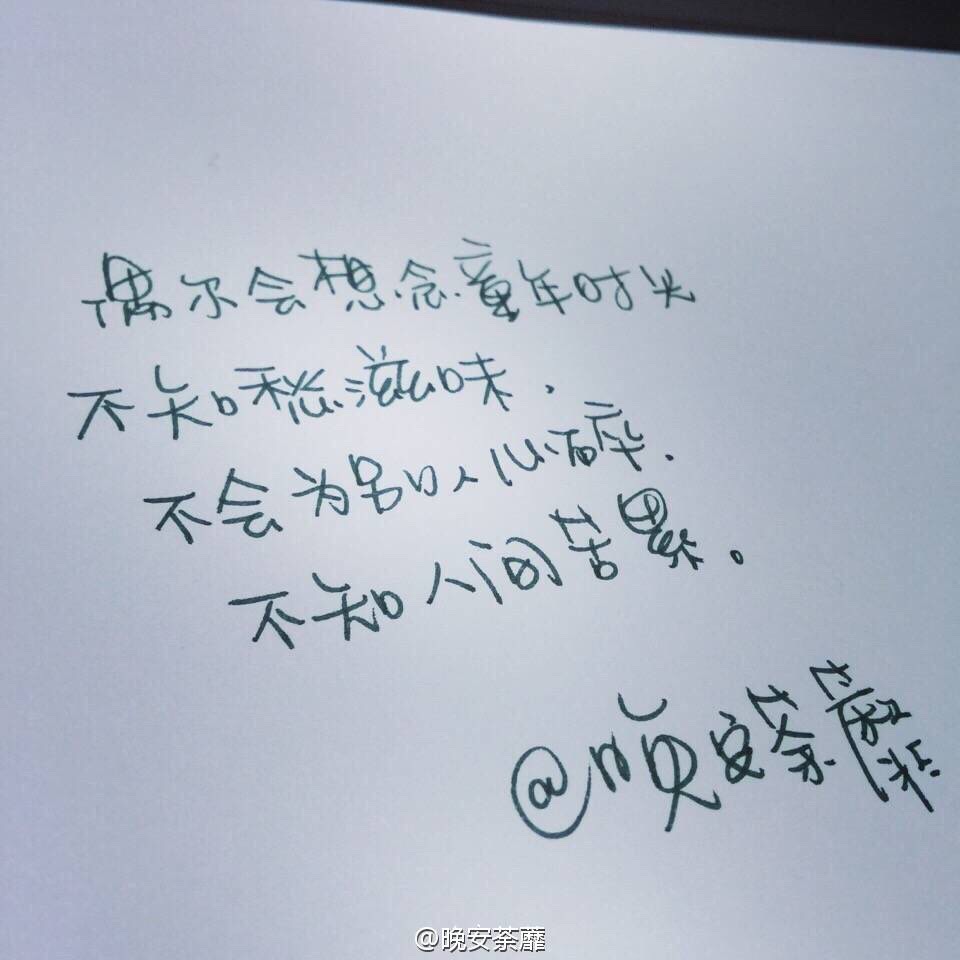 偶尔会想念童年时光
不知愁滋味，
不会为别人心碎，
不知人间苦累。
@晚安荼蘼
@晚安荼蘼